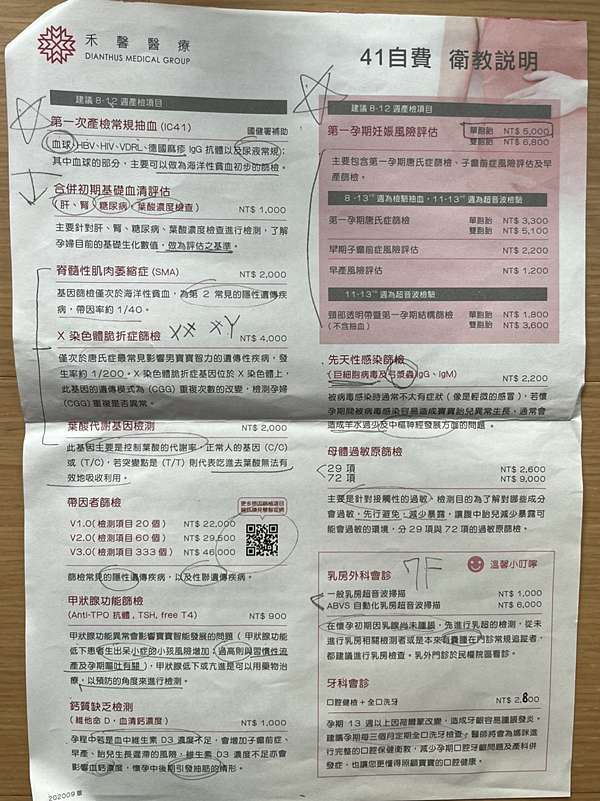 禾馨醫療
DIANTHUS MEDICAL GROUP
41自費 衛教說明
建議 8-12 週產檢項目
第一次產檢常規抽血 (IC41) 國健署補助
血球、HBV、HIV、VDRL、德國麻疹 IgG 抗體以及尿液常規；
其中血球的部分，主要可以做為海洋性貧血初步的篩檢。
合併初期基礎血清評估
(肝、腎、糖尿病、葉酸濃度檢查) NT$ 1,000
主要針對肝、腎、糖尿病、葉酸濃度進行檢測，了解
孕婦目前的基礎生化數值，做為評估之基準。
脊髓性肌肉萎縮症 (SMA) NT$ 2,000
基因篩檢僅次於海洋性貧血，為第 2 常見的隱性遺傳疾
病，帶因率約 1/40。
X 染色體脆折症篩檢 XX XY NT$ 4,000
僅次於唐氏症最常見影響男寶寶智力的遺傳性疾病，發
生率約 1/200。X 染色體脆折症基因位於 X 染色體上，
此基因的遺傳模式為 (CGG) 重複次數的改變，檢測孕婦
(CGG) 重複是否異常。
葉酸代謝基因檢測 NT$ 2,000
此基因主要是控制葉酸的代謝率，正常人的基因 (C/C)
或 (T/C)，若突變點是 (T/T) 則代表吃進去葉酸無法有
效地吸收利用。
帶因者篩檢
V1.0 (檢測項目 20 個) NT$ 22,000
V2.0 (檢測項目 60 個) NT$ 29,500
V3.0 (檢測項目 333 個) NT$ 46,000
篩檢常見的隱性遺傳疾病，以及性聯遺傳疾病。
甲狀腺功能篩檢
(Anti-TPO 抗體，TSH, free T4) NT$ 900
甲狀腺功能異常會影響寶寶智能發展的問題（甲狀腺功
能低下患者生出呆小症的小孩風險增加；過高則與習慣性流
產及孕期嘔吐有關），甲狀腺低下或亢進是可以用藥物治
療，以預防的角度來進行檢測。
鈣質缺乏檢測
(維他命 D，血清鈣濃度) NT$ 1,000
孕程中若是血中維生素 D3 濃度不足，會增加子癲前症、
早產、胎兒生長遲滯的風險，維生素 D3 濃度不足亦會
影響血鈣濃度，懷孕中後期引發抽筋的情形。
202009 版
建議 8-12 週產檢項目
第一孕期妊娠風險評估 單胞胎 NT$ 5,000
雙胞胎 NT$ 6,800
主要包含第一孕期唐氏症篩檢、子癲前症風險評估及早
產篩檢。
8 -13⁺⁶ 週為檢驗抽血，11-13⁺⁶ 週為超音波檢驗
第一孕期唐氏症篩檢 單胞胎 NT$ 3,300
雙胞胎 NT$ 5,100
早期子癲前症風險評估 NT$ 2,200
早產風險評估 NT$ 1,200
11-13⁺⁶ 週為超音波檢驗
頸部透明帶暨第一孕期結構篩檢 單胞胎 NT$ 1,800
(不含抽血) 雙胞胎 NT$ 3,600
先天性感染篩檢
(巨細胞病毒及弓漿蟲IgG、IgM) NT$ 2,200
被病毒感染時通常不太有症狀（像是輕微的感冒），若懷
孕期間被病毒感染容易造成寶寶胎兒異常生長，通常會
造成羊水過少及中樞神經發展方面的問題。
母體過敏原篩檢
29 項 NT$ 2,600
72 項 NT$ 9,000
主要是針對接觸性的過敏，檢測目的為了解對哪些成分
會過敏，先行避免、減少暴露，讓腹中胎兒減少暴露可
能會過敏的環境，分 29 項與 72 項的過敏原篩檢。
乳房外科會診 7F 溫馨小叮嚀
一般乳房超音波掃描 NT$ 1,000
ABVS 自動化乳房超音波掃描 NT$ 6,000
在懷孕初期因乳腺尚未腫脹，先進行乳超的檢測，從未
進行乳房相關檢測者或是本來有囊腫在門診常規追蹤者，
都建議進行乳房檢查。乳外門診於民權院區看診。
牙科會診
口腔健檢 + 全口洗牙 NT$ 2,800
孕期 13 週以上因荷爾蒙改變，造成牙齦容易腫脹發炎。
建議孕期每三個月定期全口洗牙檢查，醫師將會為媽咪進
行完整的口腔保健衛教，減少孕期口腔牙齦問題及產科併
發症，也讓您更懂得照顧寶寶的口腔健康。